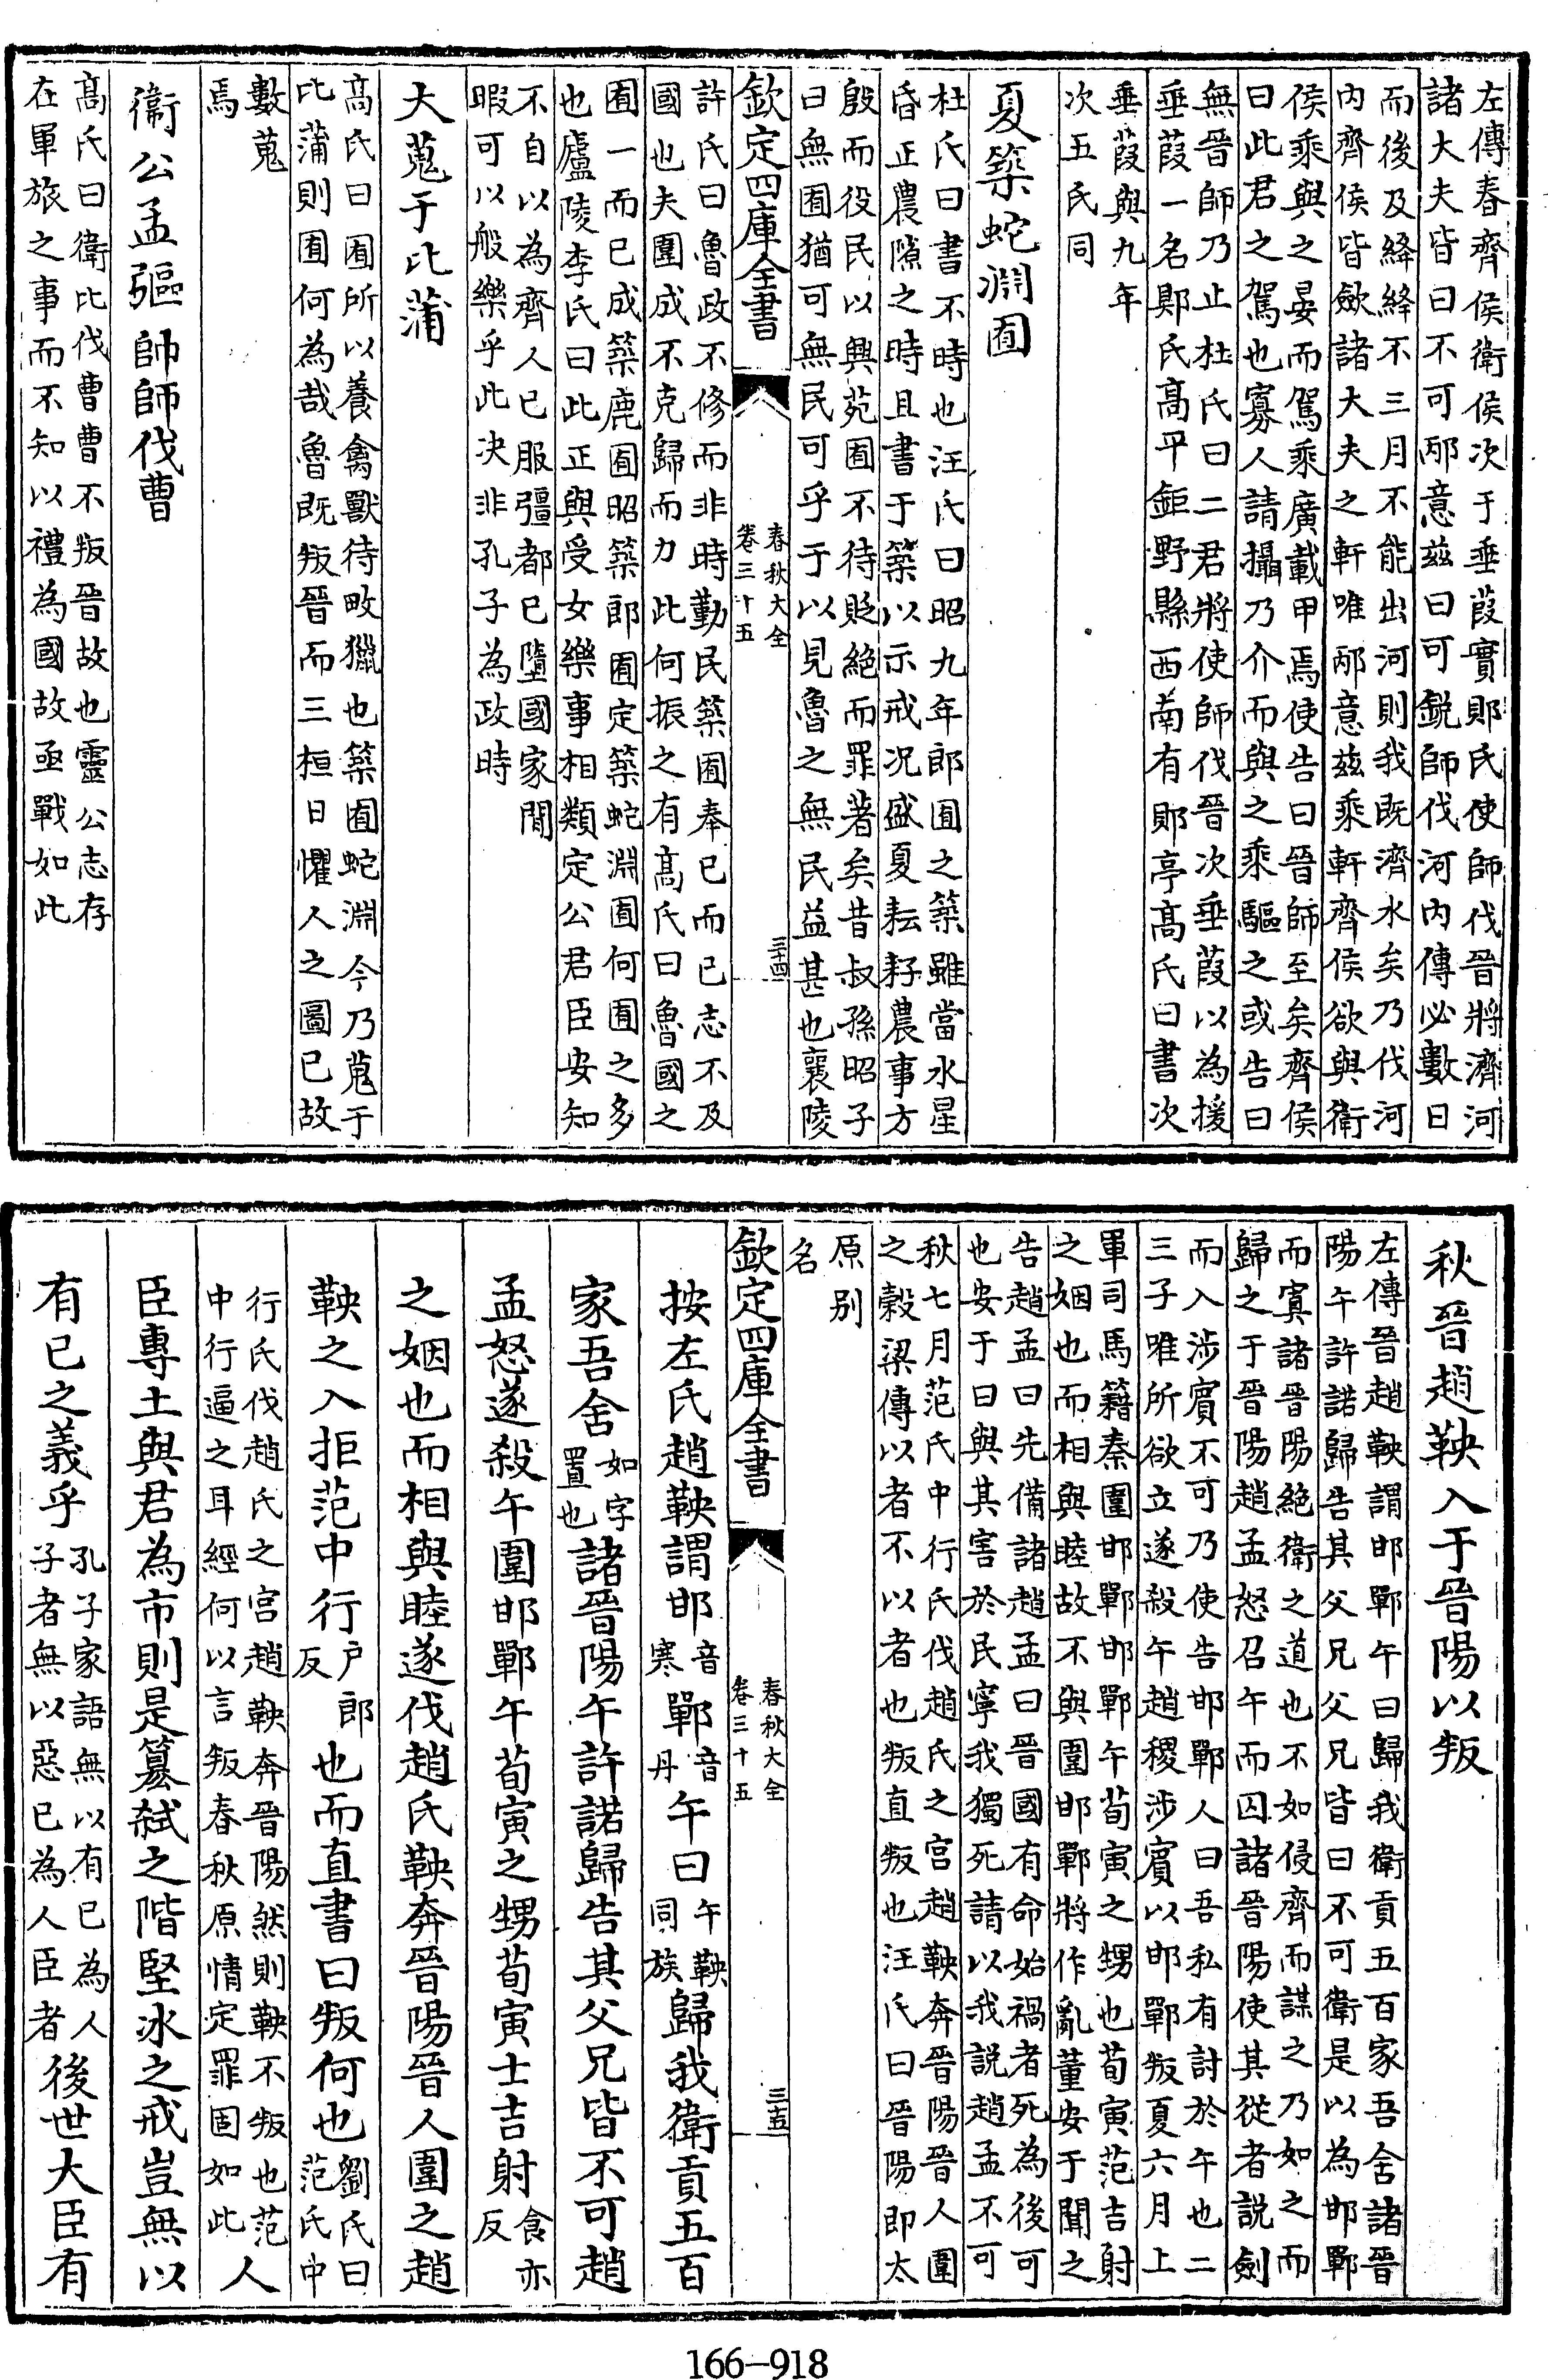 左傳春齊侯衛侯次于垂葭實郹氏使師伐晉將濟河
諸大夫皆曰不可邴意兹曰可鋭師伐河内傳必數日
而後及絳絳不三月不能出河則我既濟水矣乃伐河
内齊侯皆歛諸大夫之軒唯邴意兹乘軒齊侯欲與衛
侯乘與之宴而駕乘廣載甲焉使告曰晉師至矣齊侯
曰此君之駕也寡人請攝乃介而與之乘驅之或告曰
無晉師乃止杜氏曰二君將使師伐晉次垂葭以為援
垂葭一名郹氏髙平鉅野縣西南有郹亭髙氏曰書次
垂葭與九年
次五氏同
夏築蛇淵囿
杜氏曰書不時也汪氏曰昭九年郎囿之築雖當水星
昏正農隙之時且書于築以示戒况盛夏耘耔農事方
殷而役民以興苑囿不待貶絶而罪著矣昔叔孫昭子
曰無囿猶可無民可乎于以見魯之無民益甚也襄陵
欽定四庫全書
春秋大全
卷三十五
三十四
許氏曰魯政不修而非時勤民築囿奉已而已志不及
國也夫圍成不克歸而力此何振之有髙氏曰魯國之
囿一而已成築鹿囿昭築郎囿定築蛇淵囿何囿之多
也廬陵李氏曰此正與受女樂事相類定公君臣安知
不自以為齊人已服彊都已墮國家閒
暇可以般樂乎此决非孔子為政時
大蒐于比蒲
髙氏曰囿所以養禽獸待畋獵也築囿蛇淵今乃蒐于
比蒲則囿何為哉魯既叛晉而三桓日懼人之圖已故
數蒐
焉
衛公孟彄帥師伐曹
髙氏曰衛比伐曹曹不叛晉故也靈公志存
在軍旅之事而不知以禮為國故亟戰如此
秋晉趙鞅入于晉陽以叛
左傳晉趙鞅謂邯鄲午曰歸我衛貢五百家吾舍諸晉
陽午許諾歸告其父兄父兄皆曰不可衛是以為邯鄲
而寘諸晉陽絶衛之道也不如侵齊而謀之乃如之而
歸之于晉陽趙孟怒召午而囚諸晉陽使其從者說劍
而入涉賓不可乃使告邯鄲人曰吾私有討於午也二
三子唯所欲立遂殺午趙稷涉賓以邯鄲叛夏六月上
軍司馬籍秦圍邯鄲邯鄲午荀寅之甥也荀寅范吉射
之姻也而相與睦故不與圍邯鄲將作亂董安于聞之
告趙孟曰先備諸趙孟曰晉國有命始禍者死為後可
也安于曰與其害於民寧我獨死請以我説趙孟不可
秋七月范氏中行氏伐趙氏之宫趙鞅奔晉陽晉人圍
之穀梁傳以者不以者也叛直叛也汪氏曰晉陽即太
原别
名
欽定四庫全書
春秋大全
卷三十五
三十五
按左氏趙鞅謂邯音寒鄲音丹午曰午鞅同族歸我衛貢五百
家吾舍如字置也諸晉陽午許諾歸告其父兄皆不可趙
孟怒遂殺午圍邯鄲午荀寅之甥荀寅士吉射食亦反
之姻也而相與睦遂伐趙氏鞅奔晉陽晉人圍之趙
鞅之入拒范中行户郎反也而直書曰叛何也劉氏曰范氏中
行氏伐趙氏之宫趙鞅奔晉陽然則鞅不叛也范
中行逼之耳經何以言叛春秋原情定罪固如此人
臣專土與君為市則是簒弑之階堅冰之戒豈無以
有已之義乎孔子家語無以有已為人子者無以惡已為人臣者後世大臣有
166—918